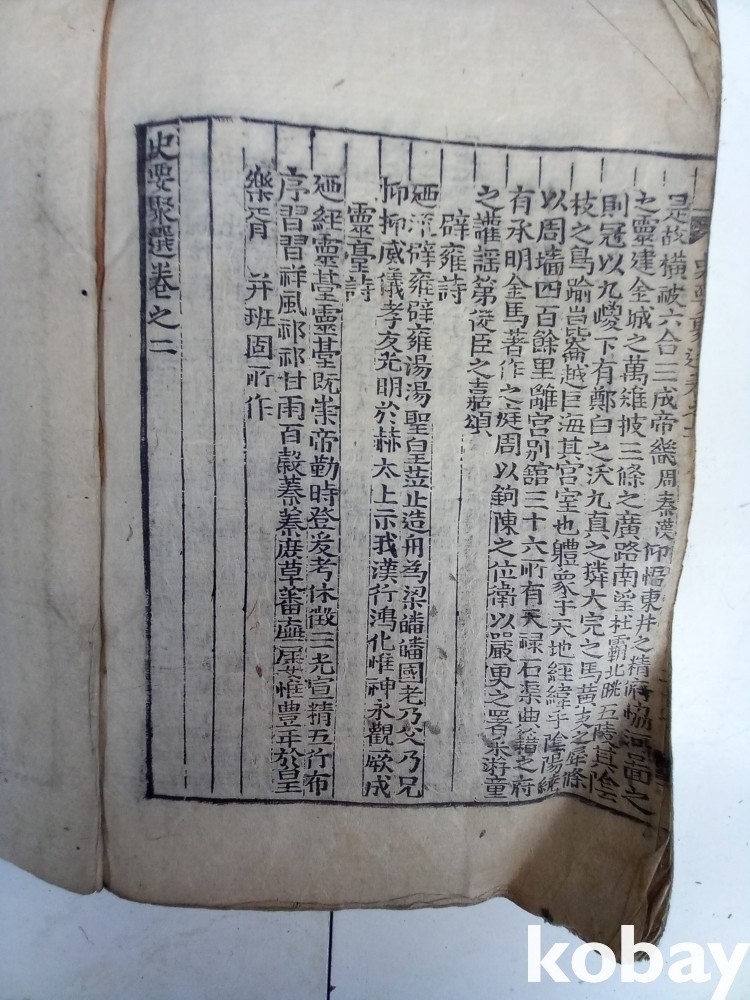 是故橫被六合三成帝畿周秦漢仰悟東井之精俯協河圖之
之靈建金城之萬雉披三條之廣路南望杜霸北眺五陵其陰
則冠以九嵕下有鄭白之沃九真之獜大宛之馬黃支之犀條
枝之鳥踰崑崙越巨海其宮室也體象乎天地經緯乎陰陽繞
以周墻四百餘里離宮別舘三十六所有天祿石渠典籍之府
有承明金馬著作之庭周以鉤陳之位衛以嚴更之署采遊童
之讙謠第從臣之嘉頌
辟雍詩
廼流辟雍辟雍湯湯聖皇莅止造舟為梁皤皤國老乃父乃兄
抑抑威儀孝友光明於赫太上示我漢行鴻化惟神永觀厥成
靈臺詩
廼經靈臺靈臺旣崇帝勤時登爰考休徵三光宣精五行布
序習習祥風祁祁甘雨百穀蓁蓁庶草蕃廡屢惟豊年於皇
樂胥 并班固所作
史要聚選卷之二
kobay